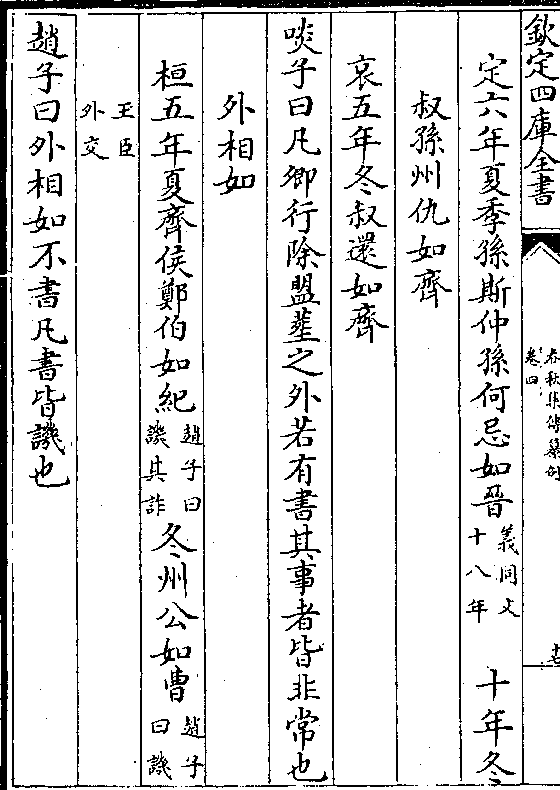 欽定四庫全書
春秋集傳纂例
卷四
十七
定六年夏季孫斯仲孫何忌如晉義同文十八年 十年冬
叔孫州仇如齊
哀五年冬叔還如齊
啖子曰凡卿行除盟葬之外若有書其事者皆非常也
外相如
桓五年夏齊侯鄭伯如紀趙子曰譏其詐冬州公如曹趙子曰譏
王臣外交
趙子曰外相如不書凡書皆譏也